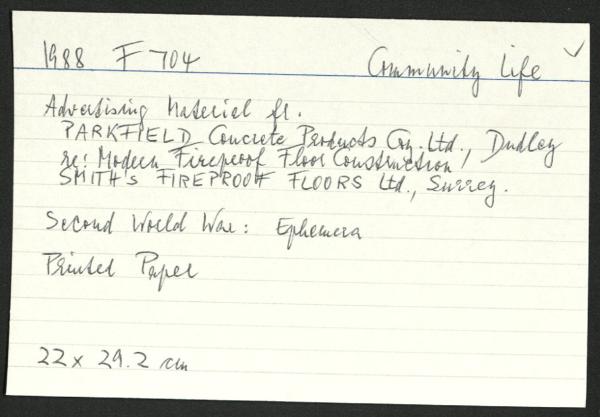 1988 F 704 Community Life ✓
Advertising Material fr.
PARKFIELD Concrete Products Coy. Ltd., Dudley
re: Modern Fireproof Floor Construction,
SMITH's FIREPROOF FLOORS Ltd., Surrey.
Second World War: Ephemera
Printed Paper
22 x 29.2 cm